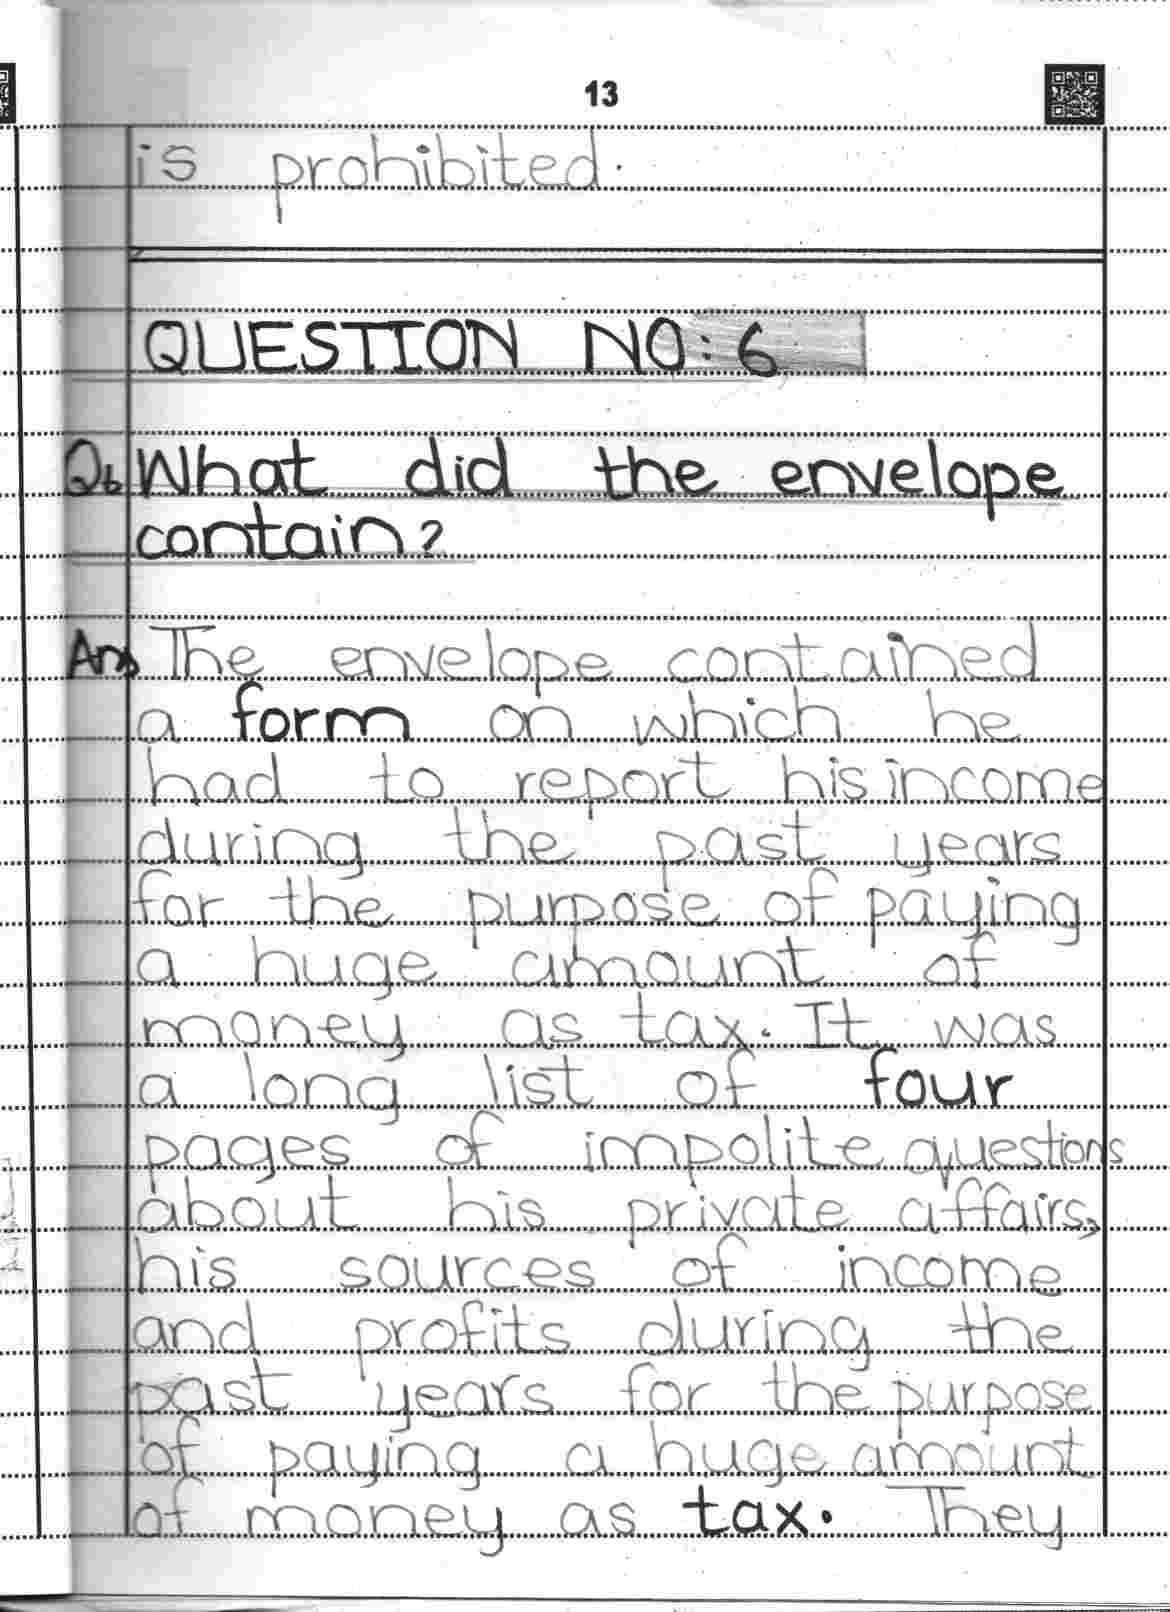 13
is prohibited.
QUESTION NO: 6
Q6 What did the envelope
contain?
Ans The envelope contained
a form on which he
had to report his income
during the past years
for the purpose of paying
a huge amount of
money as tax. It was
a long list of four
pages of impolite questions
about his private affairs,
his sources of income
and profits during the
past years for the purpose
of paying a huge amount
of money as tax. They